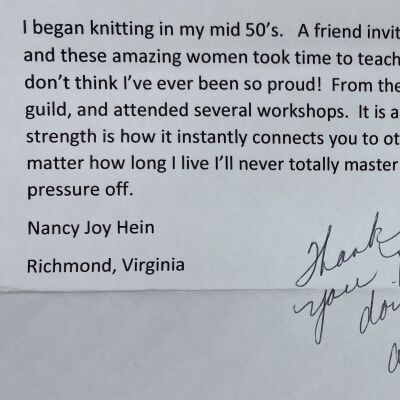 I began knitting in my mid 50's. A friend invit
and these amazing women took time to teach
don't think I've ever been so proud! From the
guild, and attended several workshops. It is a
strength is how it instantly connects you to ot
matter how long I live I'll never totally master
pressure off.
Nancy Joy Hein
Richmond, Virginia
Thank
you